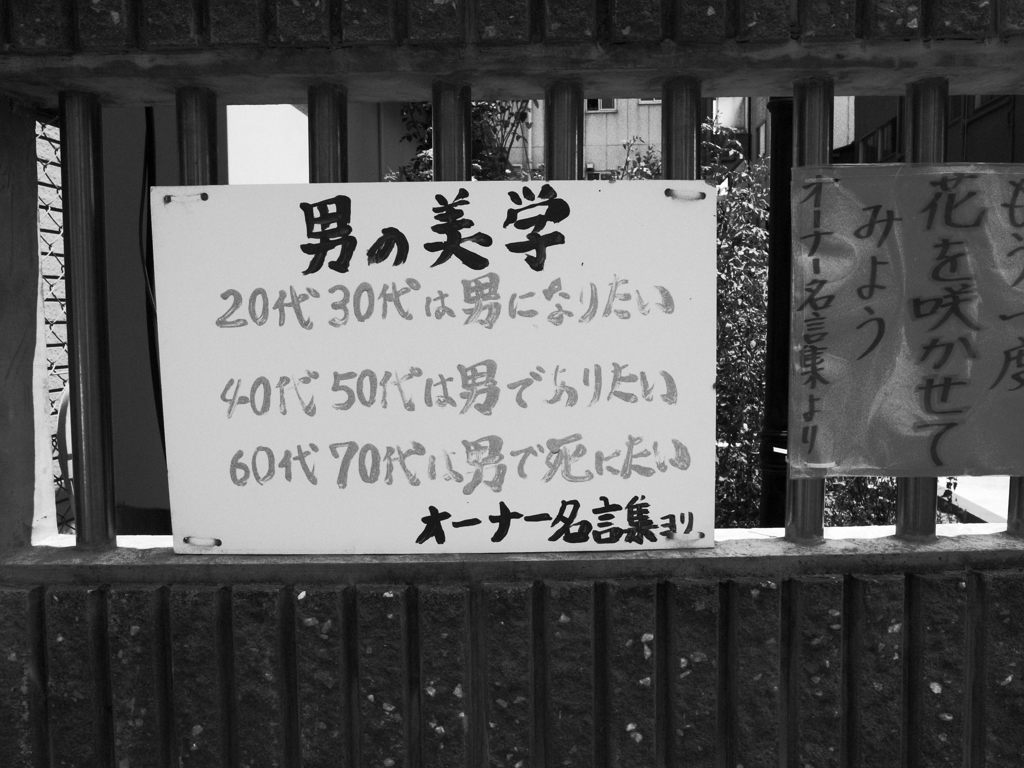 男の美学
20代30代は男になりたい
40代50代は男でありたい
60代70代は男で死にたい
オーナー名言集ヨリ
もう一度
花を咲かせて
みよう
オーナー名言集より